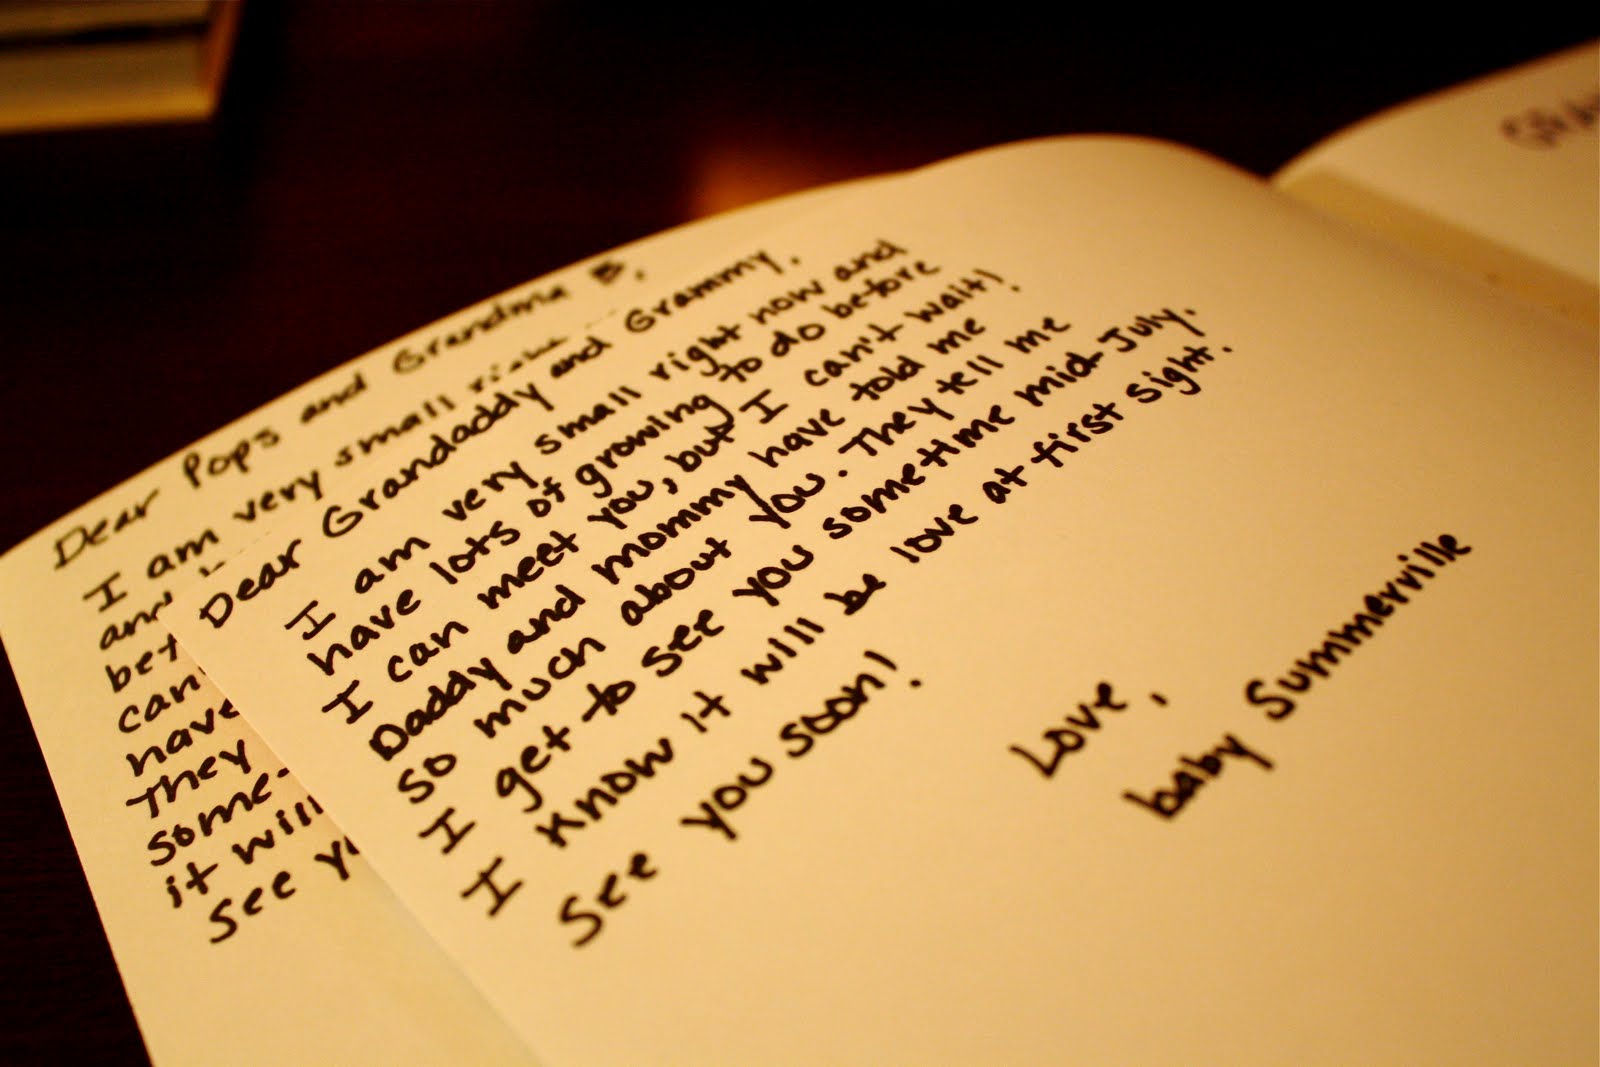 Dear Pops and Grandma B,
I am very small right
and
bet
can
have
They
some-
it will
See yo
Dear Grandaddy and Grammy,
I am very small right now and
have lots of growing to do before
I can meet you, but I can't wait!
Daddy and mommy have told me
so much about you. They tell me
I get to see you sometime mid-July.
I know it will be love at first sight.
See you soon!
Love,
baby Summerville